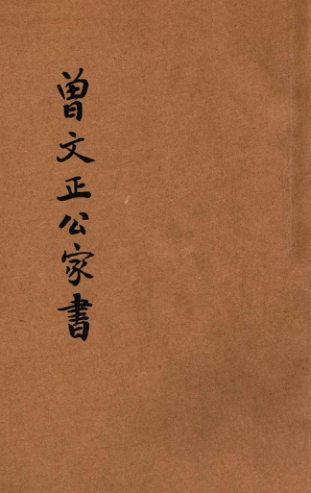 曾文正公家書